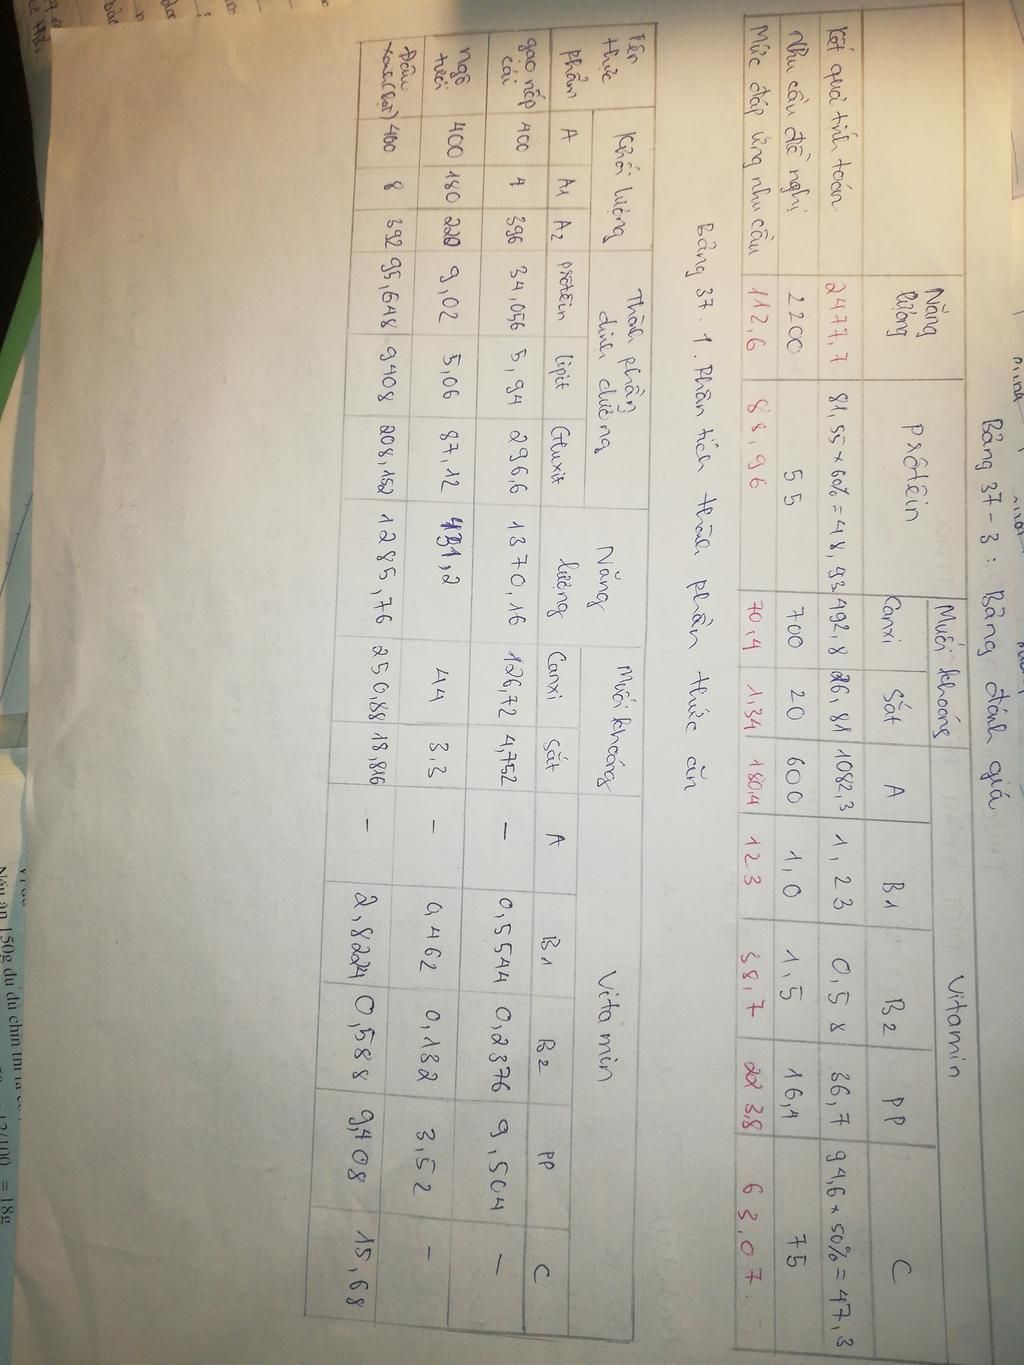 Bảng 37-3: Bảng đánh giá
Năng lượng Prôtêin Muối khoáng Vitamin
Canxi Sắt A B1 B2 PP C
Kết quả tính toán 2477,7 81,55 x 60% = 48,93 492,8 26,81 1082,3 1,23 0,58 36,7 94,6 x 50% = 47,3
Nhu cầu đề nghị 2200 55 700 20 600 1,0 1,5 16,4 75
Mức đáp ứng nhu cầu 112,6 88,96 70,4 1,34 180,4 123 38,7 223,8 63,07
Bảng 37.1. Phân tích thành phần thức ăn
Tên thực phẩm Khối lượng Thành phần dinh dưỡng Năng lượng Muối khoáng Vitamin
A A1 A2 prôtêin lipit Gluxit Canxi Sắt A B1 B2 PP C
gạo nếp cái 400 4 396 34,056 5,94 296,6 1370,16 126,72 4,752 – 0,5544 0,2376 9,504 –
ngô tươi 400 180 220 9,02 5,06 87,12 44 3,3 – 0,462 0,132 3,52 –
Đậu 400 8 392 95,648 9408 208,152 1285,76 250,88 18,816 – 2,8224 0,588 9,408 15,68
Nếu ăn 150g đu đủ chín thì
12/100 = 18g